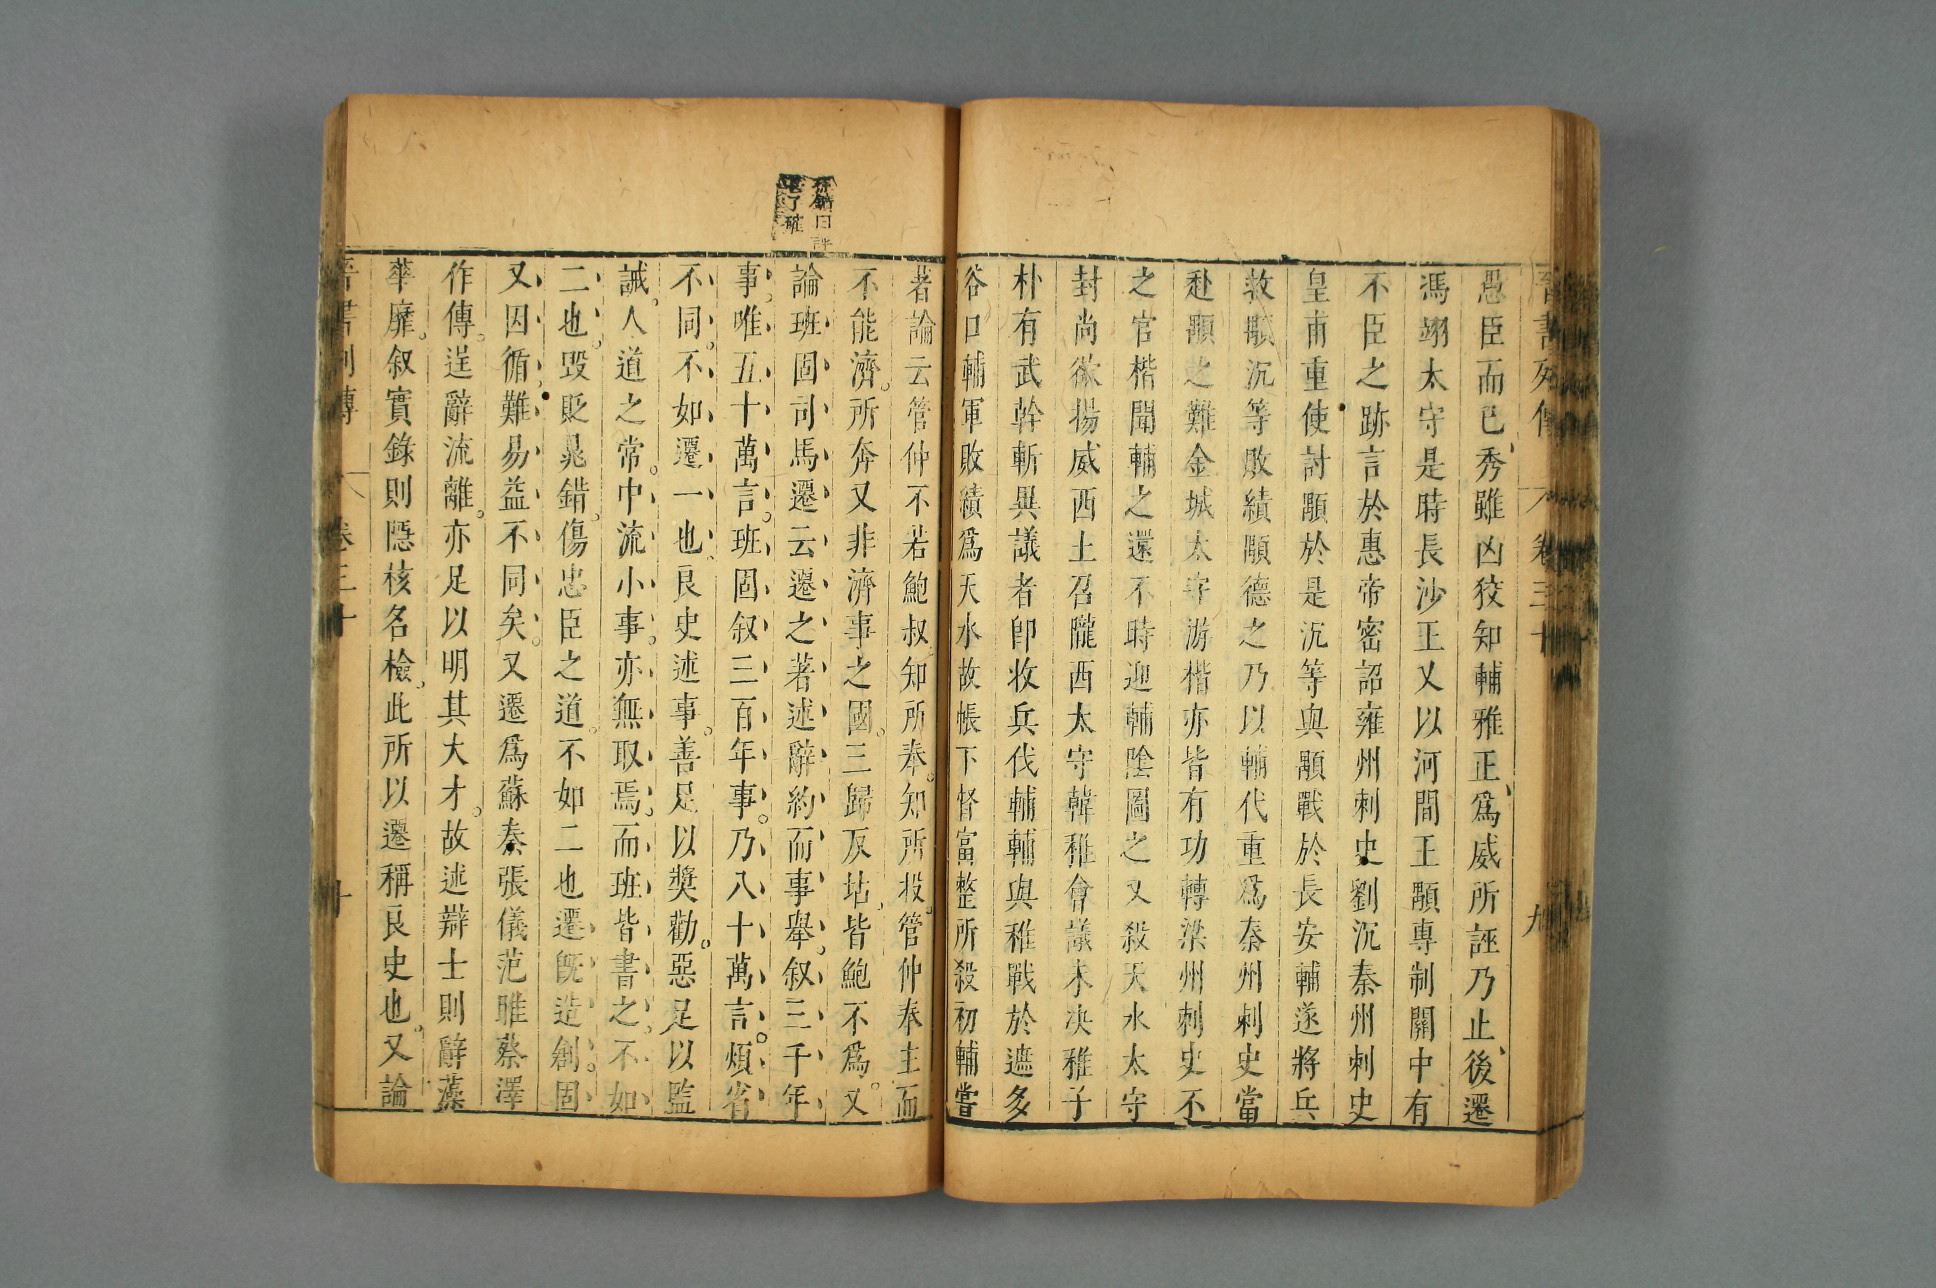 晉書列傳 卷三十 九
愚臣而已秀雖凶狡知輔雅正爲威所誣乃止後遷
馮翊太守是時長沙王乂以河間王顒專制關中有
不臣之跡言於惠帝密詔雍州刺史劉沉秦州刺史
皇甫重使討顒於是沉等與顒戰於長安輔遂將兵
救顒沉等敗績顒德之乃以輔代重爲秦州刺史當
赴顒之難金城太守游楷亦皆有功轉梁州刺史不
之官楷聞輔之還不時迎輔陰圖之又殺天水太守
封尚欲揚威西土召隴西太守韓稚會議未決稚子
朴有武幹斬異議者卽收兵伐輔輔與稚戰於遮多
谷口輔軍敗績爲天水故帳下督富整所殺初輔嘗
著論云管仲不若鮑叔知所奉。知所投。管仲奉主而
不能濟。所奔又非濟事之國。三歸反坫。皆鮑不爲。又
論班固司馬遷云遷之著述辭約而事舉。叙三千年
事。唯五十萬言。班固叙三百年事。乃八十萬言。煩省
不同。不如遷一也良史述事。善足以奬勸。惡足以監
誡。人道之常。中流小事。亦無取焉。而班皆書之。不如
二也。毁貶晁錯。傷忠臣之道。不如二也遷旣造創。固
又因循難易益不同矣。又遷爲蘇秦張儀范雎蔡澤
作傳。逞辭流離。亦足以明其大才。故述辯士則辭藻
華靡。叙實錄則隱核名檢。此所以遷稱良史也。又論
晉書列傳 卷三十 十